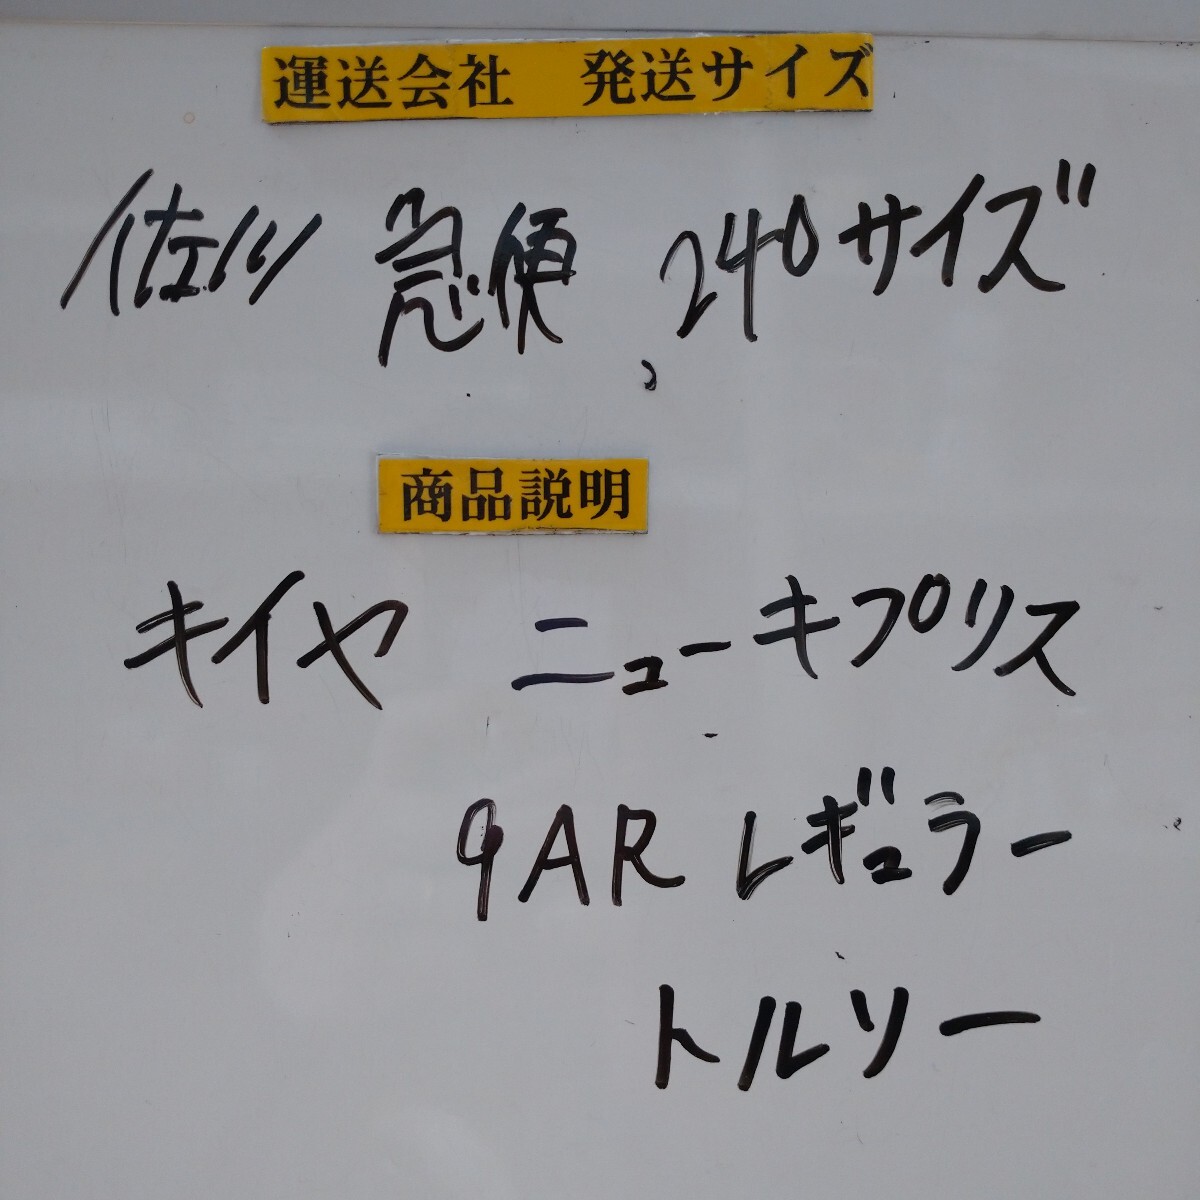 運送会社　発送サイズ
佐川 急便 240サイズ
商品説明
キイヤ ニューキプリス
9AR レギュラー
トルソー